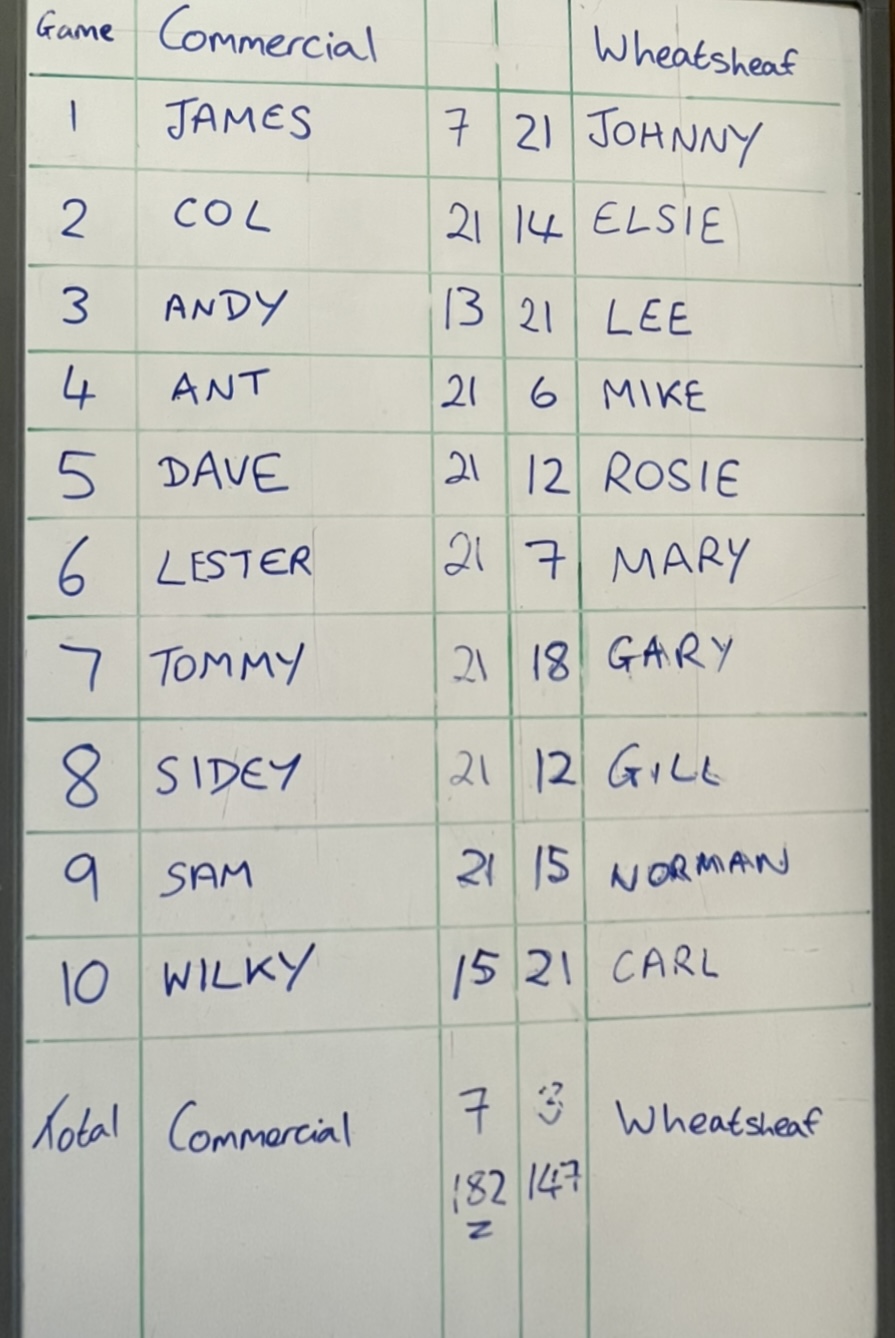 Game Commercial Wheatsheaf
1 JAMES 7 21 JOHNNY
2 COL 21 14 ELSIE
3 ANDY 13 21 LEE
4 ANT 21 6 MIKE
5 DAVE 21 12 ROSIE
6 LESTER 21 7 MARY
7 TOMMY 21 18 GARY
8 SIDEY 21 12 GILL
9 SAM 21 15 NORMAN
10 WILKY 15 21 CARL
Total Commercial 7 3 Wheatsheaf
182 147